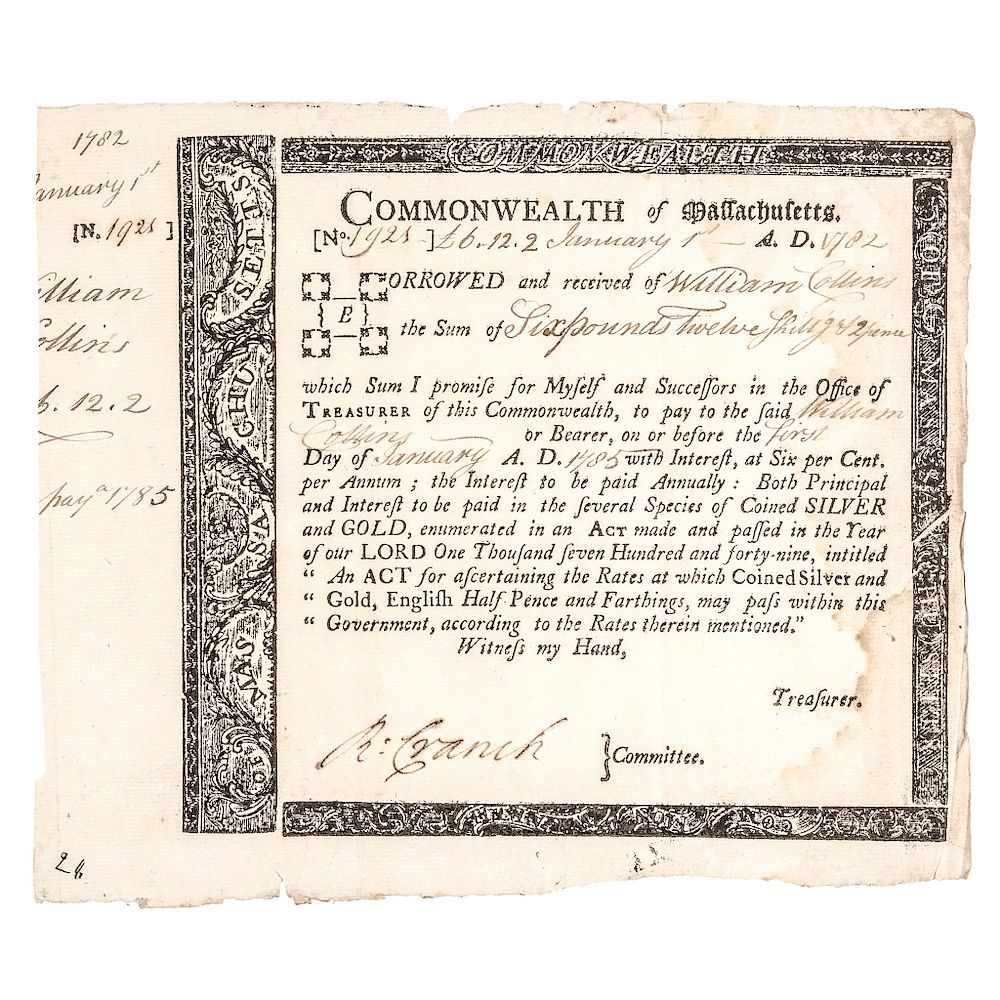 1782
January 1st
[N. 1921 ]
William
Collins
6. 12. 2
paya 1785
2
COMMONWEALTH
OF MASSACHUSETTS
COMMONWEALTH of Massachusetts.
[No. 1921 ] £6.12.2 January 1st — A. D. 1782
BORROWED and received of William Collins
the Sum of Six pounds Twelve Shillgs & 2 pence
which Sum I promiſe for Myſelf and Succeſſors in the Office of
TREASURER of this Commonwealth, to pay to the ſaid William
Collins or Bearer, on or before the first
Day of January A. D. 1785 with Intereſt, at Six per Cent.
per Annum ; the Intereſt to be paid Annually : Both Principal
and Intereſt to be paid in the ſeveral Species of Coined SILVER
and GOLD, enumerated in an ACT made and paſſed in the Year
of our LORD One Thouſand ſeven Hundred and forty-nine, intitled
“ An ACT for aſcertaining the Rates at which Coined Silver and
“ Gold, Engliſh Half Pence and Farthings, may paſs within this
“ Government, according to the Rates therein mentioned.”
Witneſs my Hand,
Treaſurer.
R: Cranch } Committee.